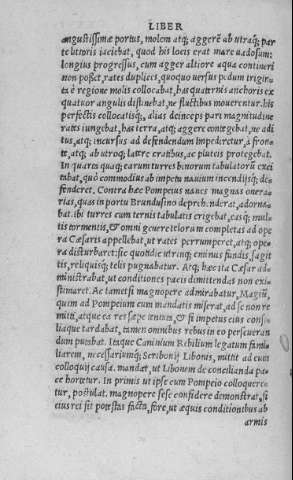 LIBER
angustissimæ portus, molem atq; aggerē ab utraq; par
te littoris iaciebat, quod his locis erat mare uadosum:
longius progressus, cum agger altiore aqua contineri
non posset, rates duplices, quoquo uersus pedum triginta
è regione molis collocabat, has quaternis anchoris ex
quatuor angulis distinebat, ne fluctibus mouerentur. his
perfectis collocatisq;, alias deinceps pari magnitudine
rates iungebat, has terra, atq; aggere contegebat, ne adi
tus, atq; incursus ad defendendum impediretur, à fron
te, atq; ab utroq; latere cratibus, ac pluteis protegebat.
In quarta quaq; earum turres binorum tabulatorū exci
tabat, quò commodius ab impetu nauium incendijsq; de
fenderet. Contra hæc Pompeius naues magnas onera
rias, quas in portu Brundusino depræhenderat, adorna
bat. ibi turres cum ternis tabulatis erigebat, easq; mul
tis tormentis, & omni genere telorum completas ad opera
Cæsaris appellebat, ut rates perrumperet, atq; ope
ra disturbaret: sic quotidie utrinq; eminus fundis, sagit
tis, reliquisq; telis pugnabatur. Atq; hæc ita Cæsar ad
ministrabat, ut conditiones pacis dimittendas non exi
stimaret. Ac tametsi magnopere admirabatur, Magiū,
quem ad Pompeium cum mandatis miserat, ad se non re
mitti, atque ea res sæpe tentata, & si impetus eius consi
liaque tardabat, tamen omnibus rebus in eo perseueran
dum putabat. Itaque Caninium Rebilium legatum fami
liarem, necessariumq; Scribonij Libonis, mittit ad eum
colloquij causa. mandat, ut Libonem de concilianda pa
ce hortetur. In primis ut ipse cum Pompeio colloquere
tur, postulat. magnopere sese confidere demonstrat, si
eius rei sit potestas facta, fore, ut æquis conditionibus ab
armis